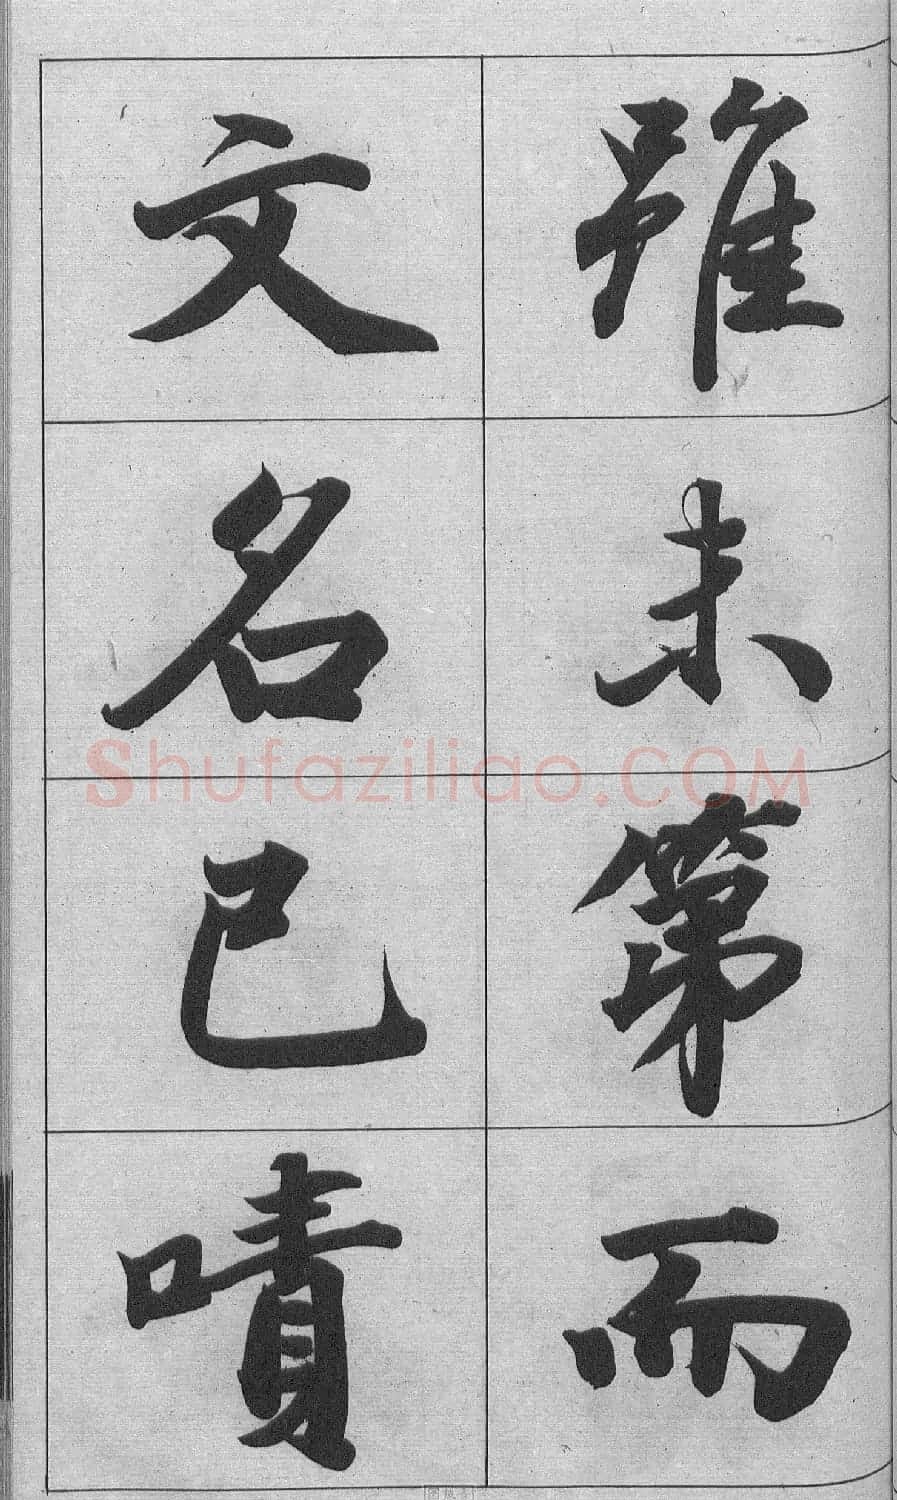 雖未第而
文名已嘖
Shufaziliao.COM